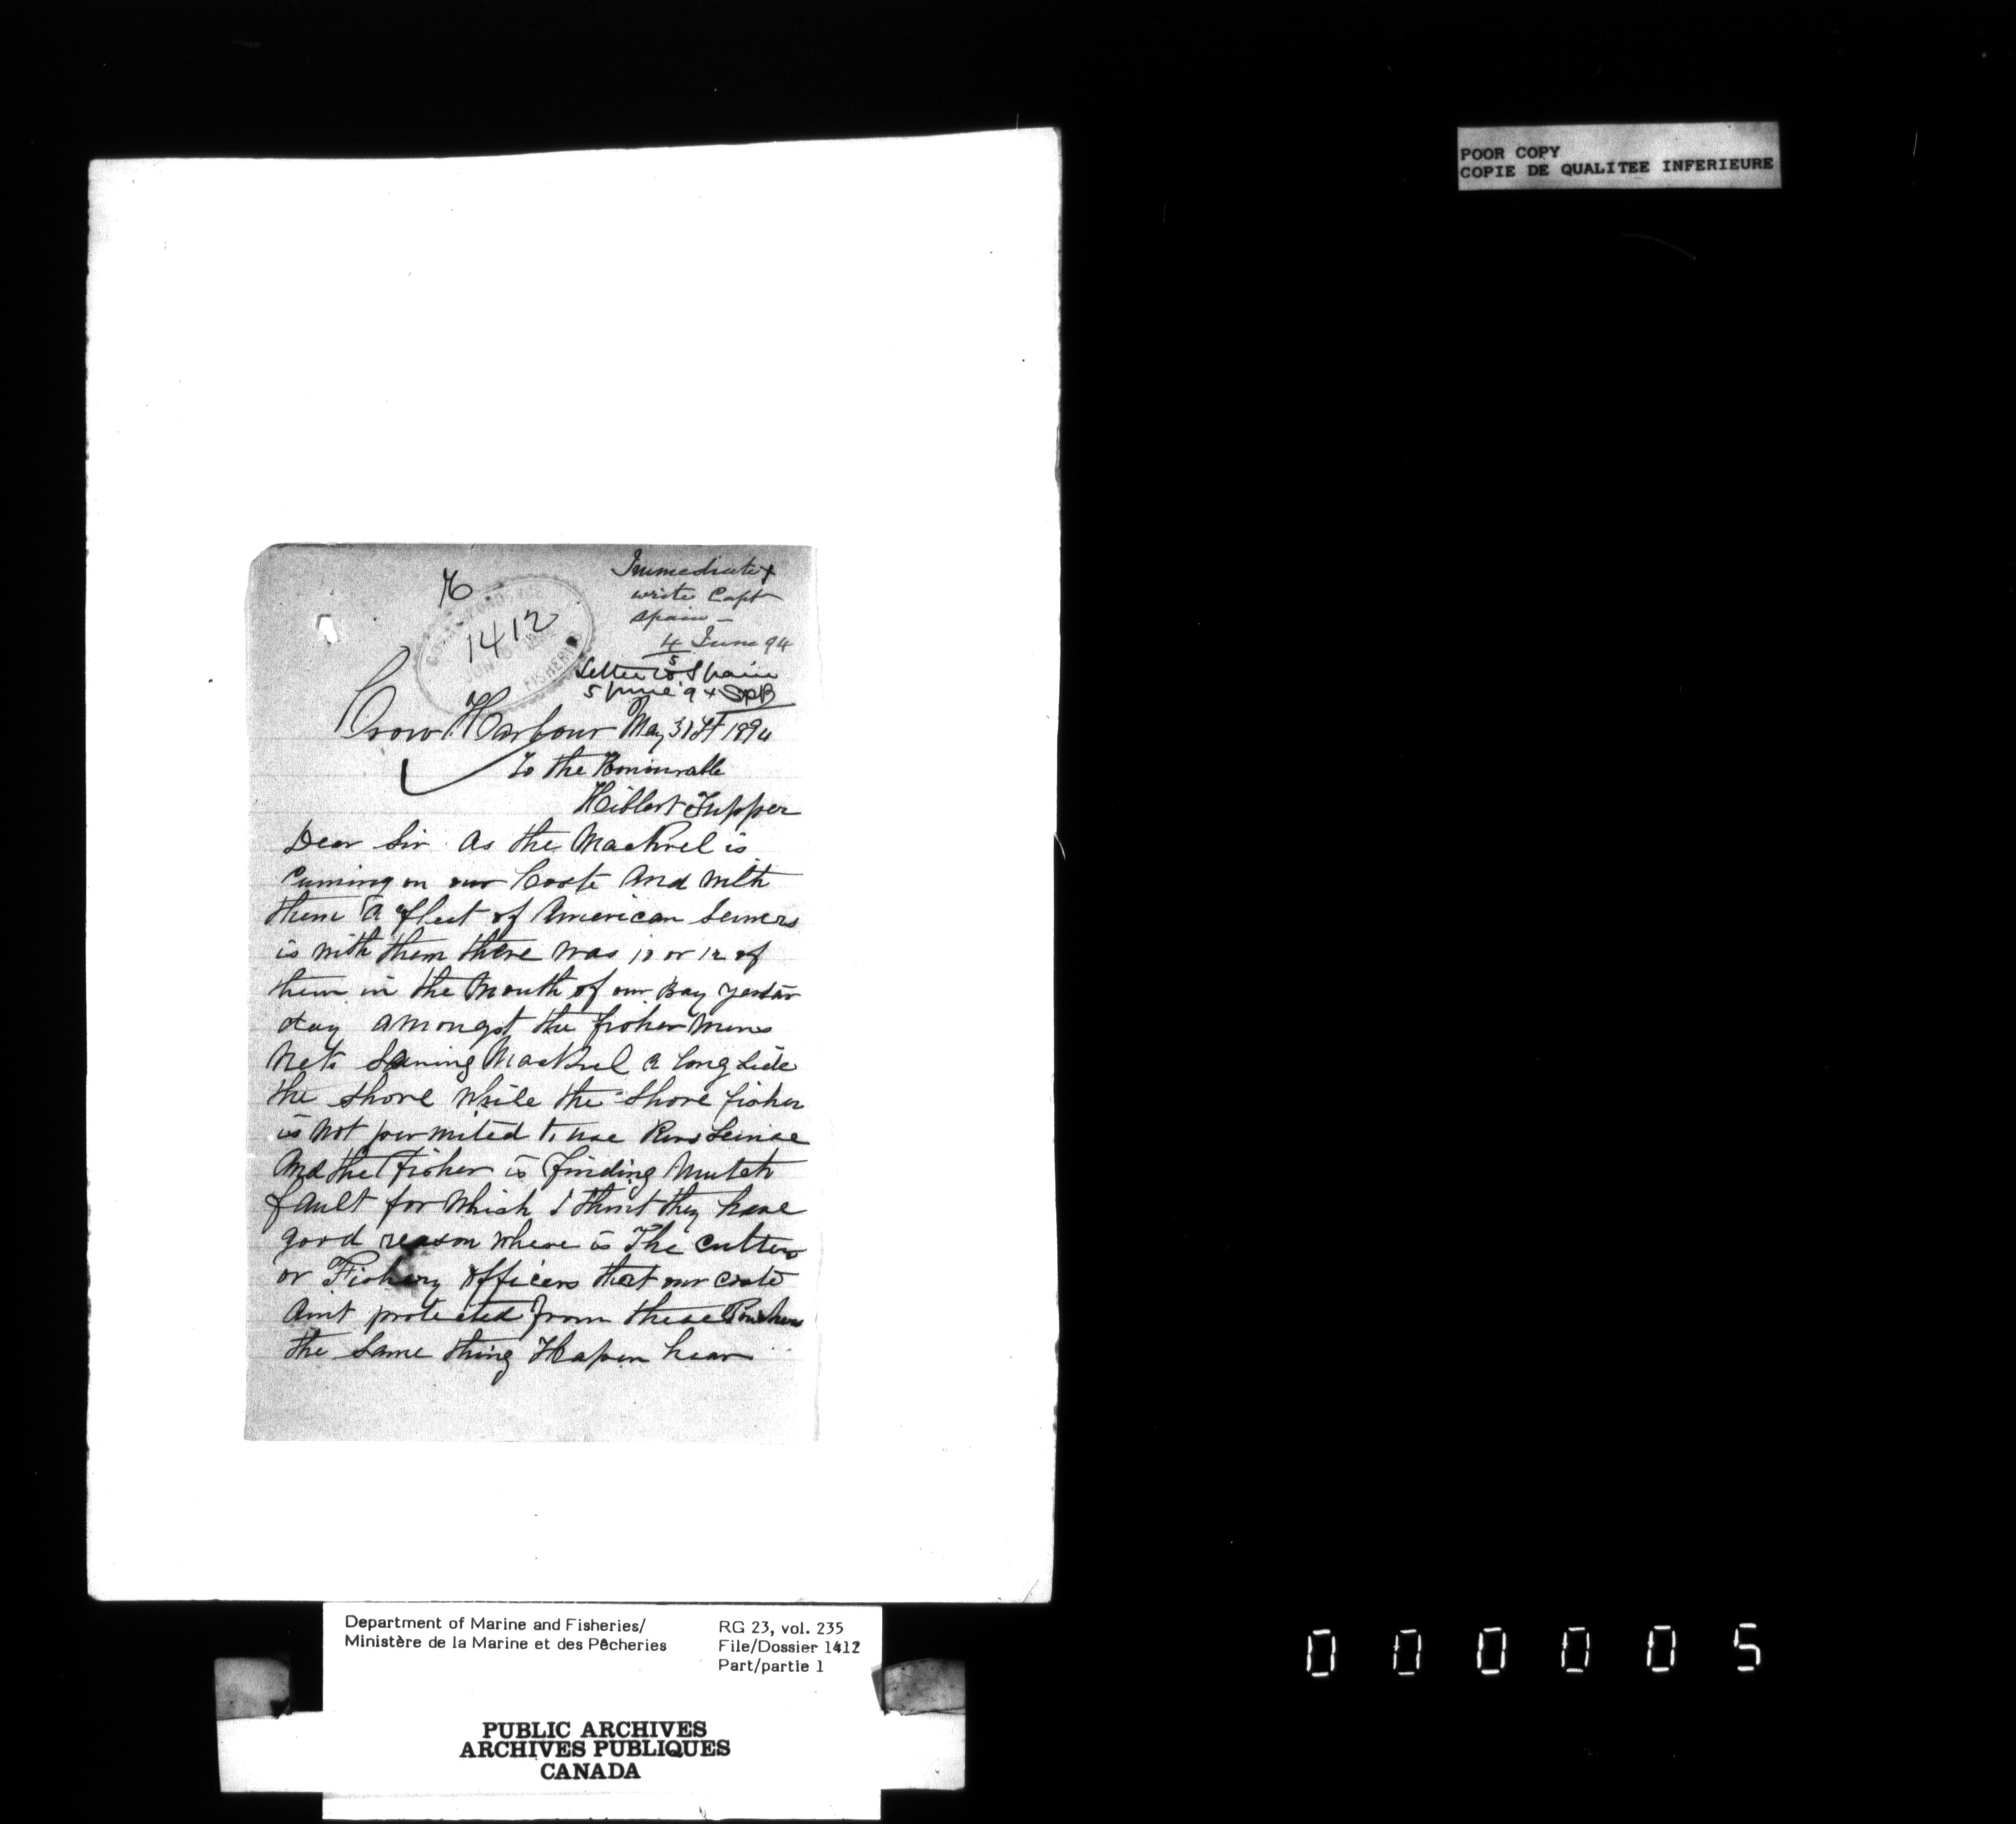 POOR COPY
COPIE DE QUALITEE INFERIEURE
Immediate
write Capt
Spain -
4 June 94
5
1412
FISHERIES
Letter to Spain
5 June 94
Crow Harbour May 31st 1894
To the Honourable
Hibbert Tupper
Dear Sir As the Mackrel is
Cuming on our Coste And with
them a fleet of American Seiners
is with them there was 10 or 12 of
them in the Mouth of our Bay yestar
day amongst the fisher mens
Nets Seaning Mackrel a long Side
the Shore While the Shore fisher
is Not permited to use Purs Seinse
And the fisher is finding Mutch
fault for Which I think they have
good reason where is The Cutters
or Fishery Officers that our coste
Aint protected from these Poachers
the Same thing Hapen hear
Department of Marine and Fisheries/
Ministère de la Marine et des Pêcheries
RG 23, vol. 235
File/Dossier 1412
Part/partie 1
PUBLIC ARCHIVES
ARCHIVES PUBLIQUES
CANADA
000005